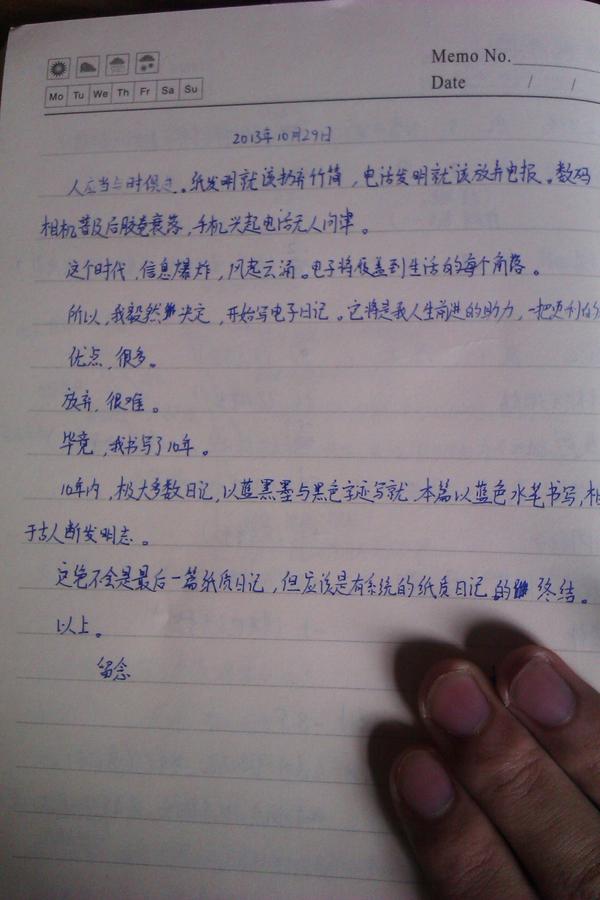 Memo No.
Mo Tu We Th Fr Sa Su
Date / /
2013年10月29日
人应当与时俱进。纸发明就该抛弃竹简,电话发明就该放弃电报。数码
相机普及后胶卷衰落,手机兴起电话无人问津。
这个时代,信息爆炸,风起云涌。电子将覆盖到生活的每个角落。
所以,我毅然决定,开始写电子日记。它将是我人生前进的助力,一把更利的
优点,很多。
放弃,很难。
毕竟,我书写了10年。
10年内,极大多数日记,以蓝黑墨与黑色字迹写就,本篇以蓝色水笔书写,相
于古人断发明志。
这绝不会是最后一篇纸质日记,但应该是有系统的纸质日记的终结。
以上。
留念